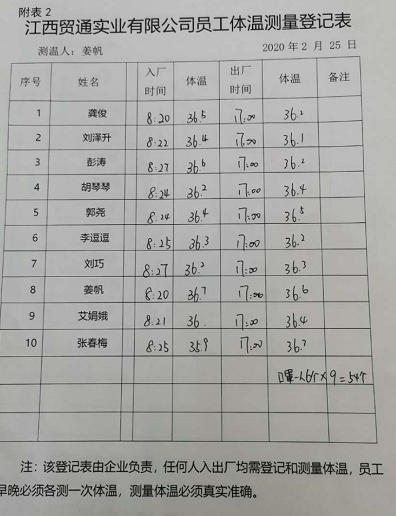 附表 2
江西贸通实业有限公司员工体温测量登记表
测温人：姜帆 2020 年 2 月 25 日
序号 姓名 入厂时间 体温 出厂时间 体温 备注
1 龚俊 8:20 36.5 17:00 36.2
2 刘泽升 8:22 36.4 17:00 36.1
3 彭涛 8:27 36.6 17:00 36.2
4 胡琴琴 8:24 36.2 17:00 36.4
5 郭尧 8:24 36.4 17:00 36.5
6 李逗逗 8:25 36.3 17:00 36.2
7 刘巧 8:27 36.2 17:00 36.3
8 姜帆 8:20 36.7 17:00 36.6
9 艾娟娥 8:21 36. 17:00 36.4
10 张春梅 8:25 35.9 17:00 36.7
口罩一人6个×9=54个
注：该登记表由企业负责，任何人入出厂均需登记和测量体温，员工
早晚必须各测一次体温，测量体温必须真实准确。